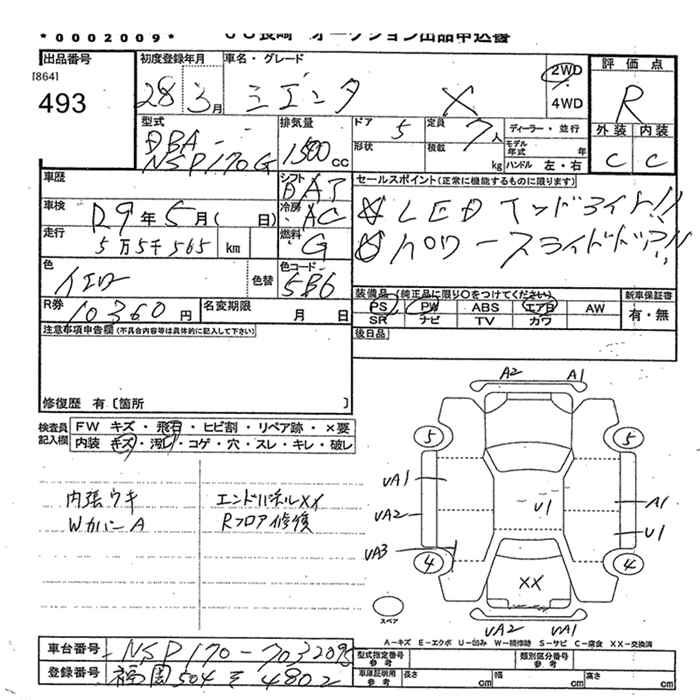 *0002009* JU長崎 オークション出品申込書
出品番号 初度登録年月 車名・グレード 評価点
[864]
493 28年3月 シエンタ X 2WD 4WD R
外装 内装
C C
型式 排気量 ドア 5 定員 7人 ディーラー・並行
DBA-
NSP170G 1500cc 形状 積載 kg モデル年式 年
ハンドル 左・右
車歴 シフト AT セールスポイント(正常に機能するものに限ります)
車検 R9年5月( 日) 冷房 AC LEDヘッドライト!!
走行 5万5千565 km 燃料 G パワースライドドア!!
色 イエロー 色替 色コード 5B6
R券 10360円 名変期限 月 日
装備品(純正品に限り○をつけてください) 新車保証書
PS PW ABS エアB AW 有・無
SR ナビ TV カワ
後日品
注意事項申告欄(不具合内容等は具体的に記入して下さい)
修復歴 有〔箇所 〕
検査員記入欄 FW キズ・飛石・ヒビ割・リペア跡・×要
内装 キズ・汚れ・コゲ・穴・スレ・キレ・破レ
内張ウキ エンドパネルXX
WカバーA Rフロア修復
A2 A1
5 5
UA1 A1
UA2 U1 U1
UA3
4 4
XX
スペア UA2 UA1
A-キズ E-エクボ U-凹み W-補修跡 S-サビ C-腐食 XX-交換済
車台番号 NSP170-7032095
登録番号 福岡504 4802
型式指定番号 参考 類別区分番号 参考
車庫証明用 参考 長さ cm 幅 cm 高さ cm